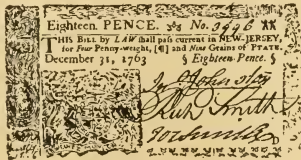 Eighteen PENCE. No. 3496
THIS BILL by LAW shall pass current in NEW-JERSEY,
for Four Penny-weight, [¶] and Nine Grains of PLATE.
December 31, 1763 § Eighteen-Pence. §
Johnston
Rich Smith